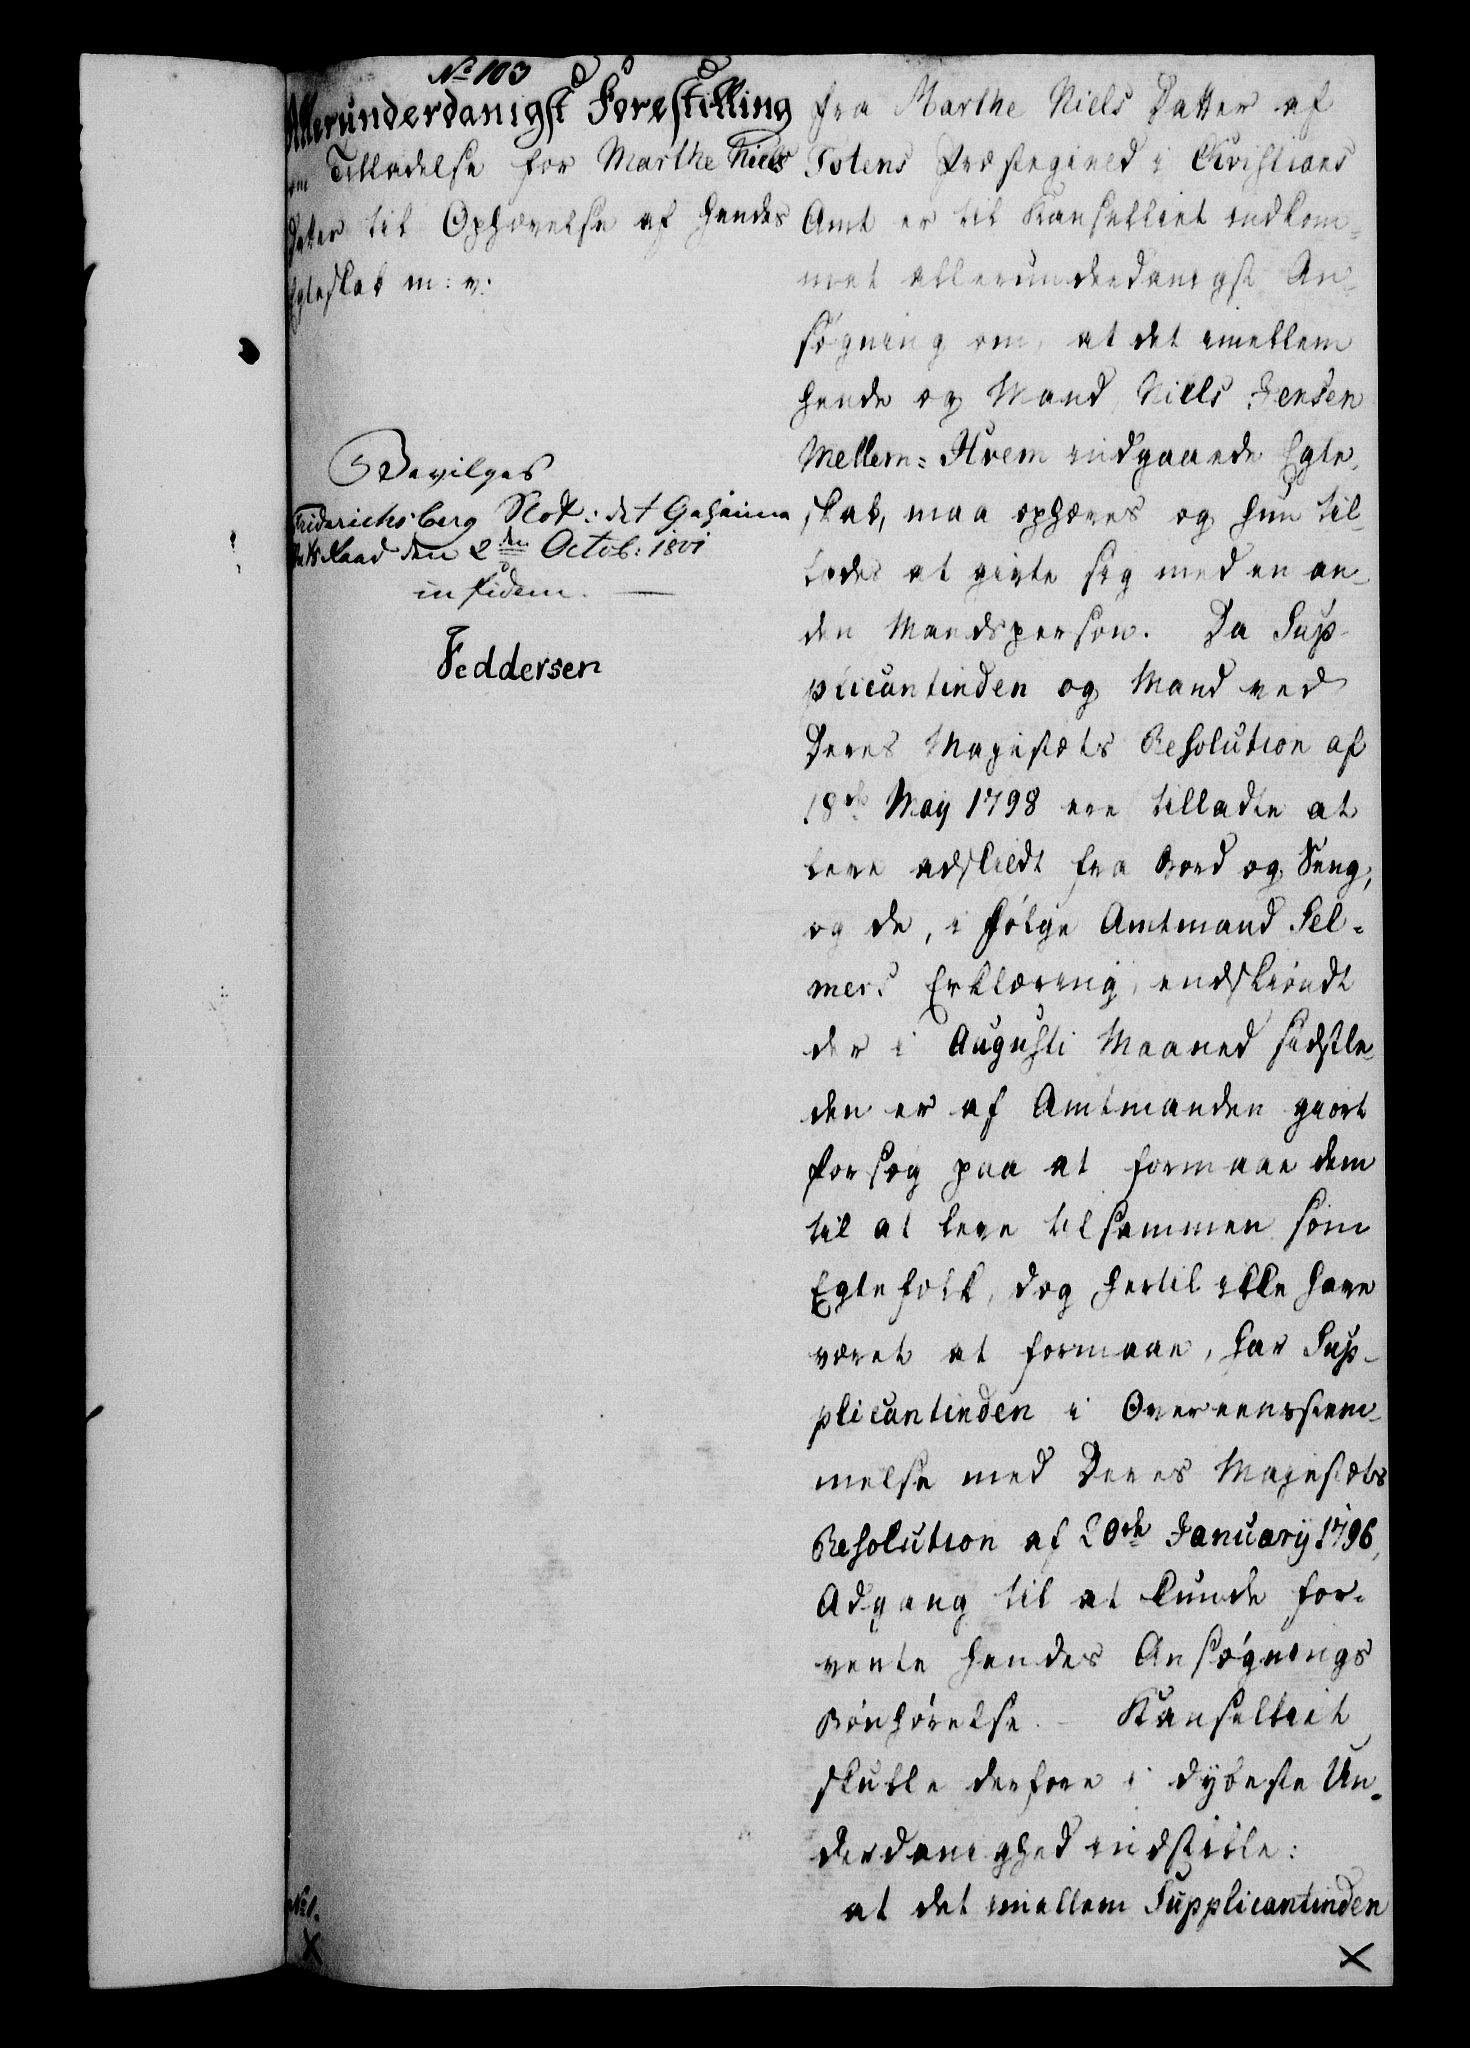 No 103
Allerunderdanigst Forestilling
om Tilladelse for Marthe Niels
Datter til Ophævelse af hendes
Egteskab m: v:
Bevilges
Friderichsberg Slot: det Geheime
Stats Raad den 2den Octob: 1801
in fidem.
Feddersen
No 1.
Fra Marthe Niels Datter af
Totens Præstegield i Christians
Amt er til Kanselliet indkom=
met allerunderdanigst An=
søgning om, at det imellem
hende og Mand Niels Jensen
Mellem=Hvem indgaaede Egte,
skab, maa ophæves og hun til=
lades at givte sig med en an=
den Mandsperson. Da Sup=
plicantinden og Mand ved
Deres Majestæts Resolution af
18de May 1798 ere tilladte at
leve adskildt fra Bord og Seng,
og de, i følge Amtmand Sel=
mers Erklæring, endskiøndt
der i Augusti Maaned sidstle=
den er af Amtmanden giort
Forsøg paa at formaae dem
til at leve tilsammen som
Egtefolk, dog hertil ikke have
været at formaae, har Sup=
plicantinden i Overeensstem=
melse med Deres Majestæts
Resolution af 20de January 1796,
Adgang til at kunde for=
vente hendes Ansøgnings
Bønhørelse. – Kanselliet
skulle derfore i dybeste Un=
derdanighed indstille:
at det imellem Supplicantinden